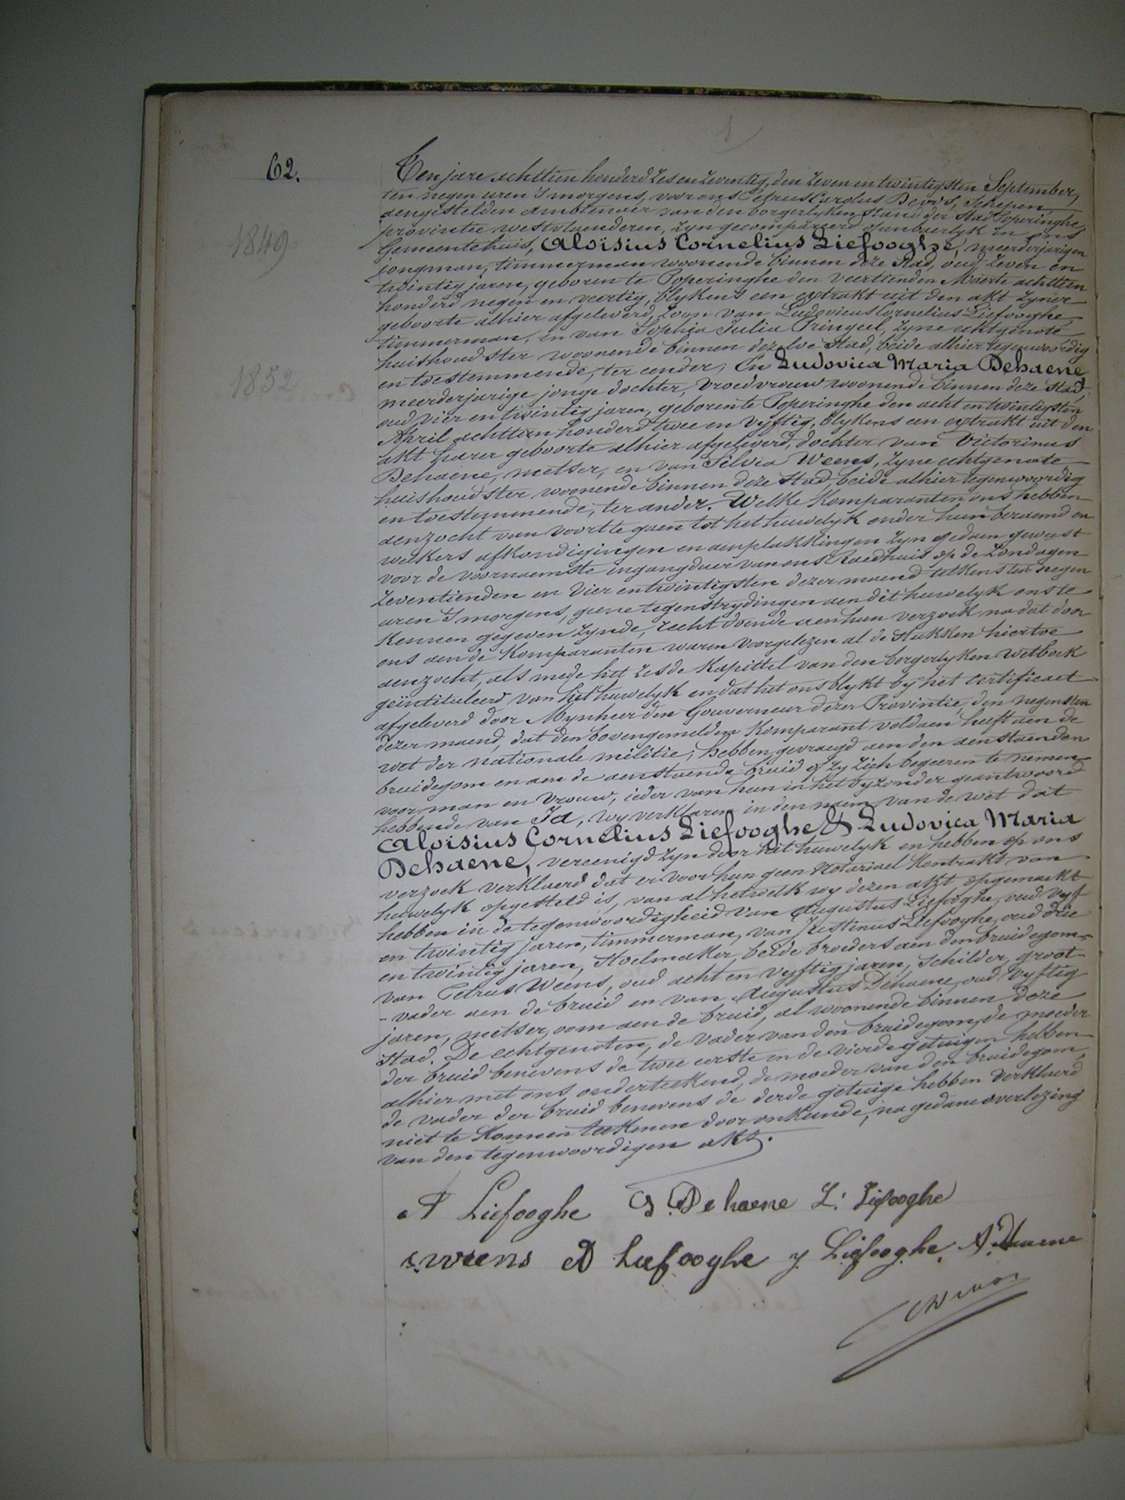 62.
Ten jare achttien honderd zes en zeventig, den zeven en twintigsten September,
ten negen uren 's morgens, voor ons Petrus Carolus Devos, Schepen
aengestelden ambtenaer van den borgerlyken stand der Stad Poperinghe,
provintie westvlaenderen, zyn gecompareerd openbaerlyk in ons
Gemeentehuis, Aloisius Cornelius Liefooghe, meerderjarigen
jongman, timmerman woonende binnen deze Stad, oud zeven en
twintig jaren, geboren te Poperinghe den veertienden Maerte achttien
honderd negen en veertig, blykens een extrakt uit den akt zyner
geboorte alhier afgeleverd, zoon van Ludovicus Cornelius Liefooghe
timmerman, en van Sophia Julia Pringeel, zyne echtgenote
huishoudster woonende binnen dezelve Stad, beide alhier tegenwoordig
en toestemmende, ter eender; En Ludovica Maria Dehaene
meerderjarige jonge dochter, vroedvrouw woonende binnen deze Stad
oud vier en twintig jaren, geboren te Poperinghe den acht en twintigsten
April achttien honderd twee en vyftig, blykens een extrakt uit den
akt harer geboorte alhier afgeleverd, dochter van Victorinus
Dehaene, metser, en van Silvia Weens, zyne echtgenote
huishoudster, woonende binnen deze Stad, beide alhier tegenwoordig
en toestemmende, ter ander. Welke Komparanten ons hebben
aenzocht van voort te gaen tot het huwelyk onder hun beraemd en
welkers afkondigingen en aenplakkingen zyn gedaen geweest
voor de voornaemste ingangdeur van ons Raedhuis op de Zondagen
zeventienden en vier en twintigsten dezer maend telkens ten negen
uren 's morgens, geene tegenstrydingen aen dit huwelyk ons te
kennen gegeven zynde, recht doende aen hun verzoek, na dat door
ons aen de Komparanten waren voorgelezen al de stukken hiertoe
aenzocht, als mede het zesde kapittel van den borgerlyken Wetboek
geintituleerd van het huwelyk en dat het ons blykt by het certificaet
afgeleverd door Mynheer den Gouverneur dezer Provintie, den negensten
dezer maend, dat den bovengemelden Komparant voldaen heeft aen de
wet der nationale militie; hebben gevraegd aen den aenstaenden
bruidegom en aen de aenstaende bruid of zy zich begeeren te nemen
voor man en vrouw, ieder van hun in het byzonder geantwoord
hebbende van Ja, wy verklaren in den naem van de wet dat
Aloisius Cornelius Liefooghe & Ludovica Maria
Dehaene, vereenigd zyn door het huwelyk en hebben op ons
verzoek verklaerd dat er voor hun geen Notariael Kontrakt van
huwelyk opgesteld is, van al hetwelk wy dezen akt opgemaekt
hebben in de tegenwoordigheid van Augustus Liefooghe, oud vyf
en twintig jaren, timmerman, van Justinus Liefooghe, oud drie
en twintig jaren, Stoelmaker, beide broeders aen den bruidegom
van Petrus Weens, oud acht en vyftig jaren, schilder, groot-
-vader aen de bruid en van Augustus Dehaene, oud vyftig
jaren, metser, oom aen de bruid, al woonende binnen deze
Stad. De echtgenoten, de vader van den bruidegom, de moeder
der bruid benevens de twee eerste en de vierde getuigen hebben
alhier met ons onderteekend, de moeder van den bruidegom,
de vader der bruid benevens de derde getuige hebben verklaerd
niet te konnen teekenen door onkunde, na gedane overlezing
van den tegenwoordigen akt.
A Liefooghe L. Dehaene L. Liefooghe
S. Weens A Liefooghe J Liefooghe A. Dehaene
C Devos